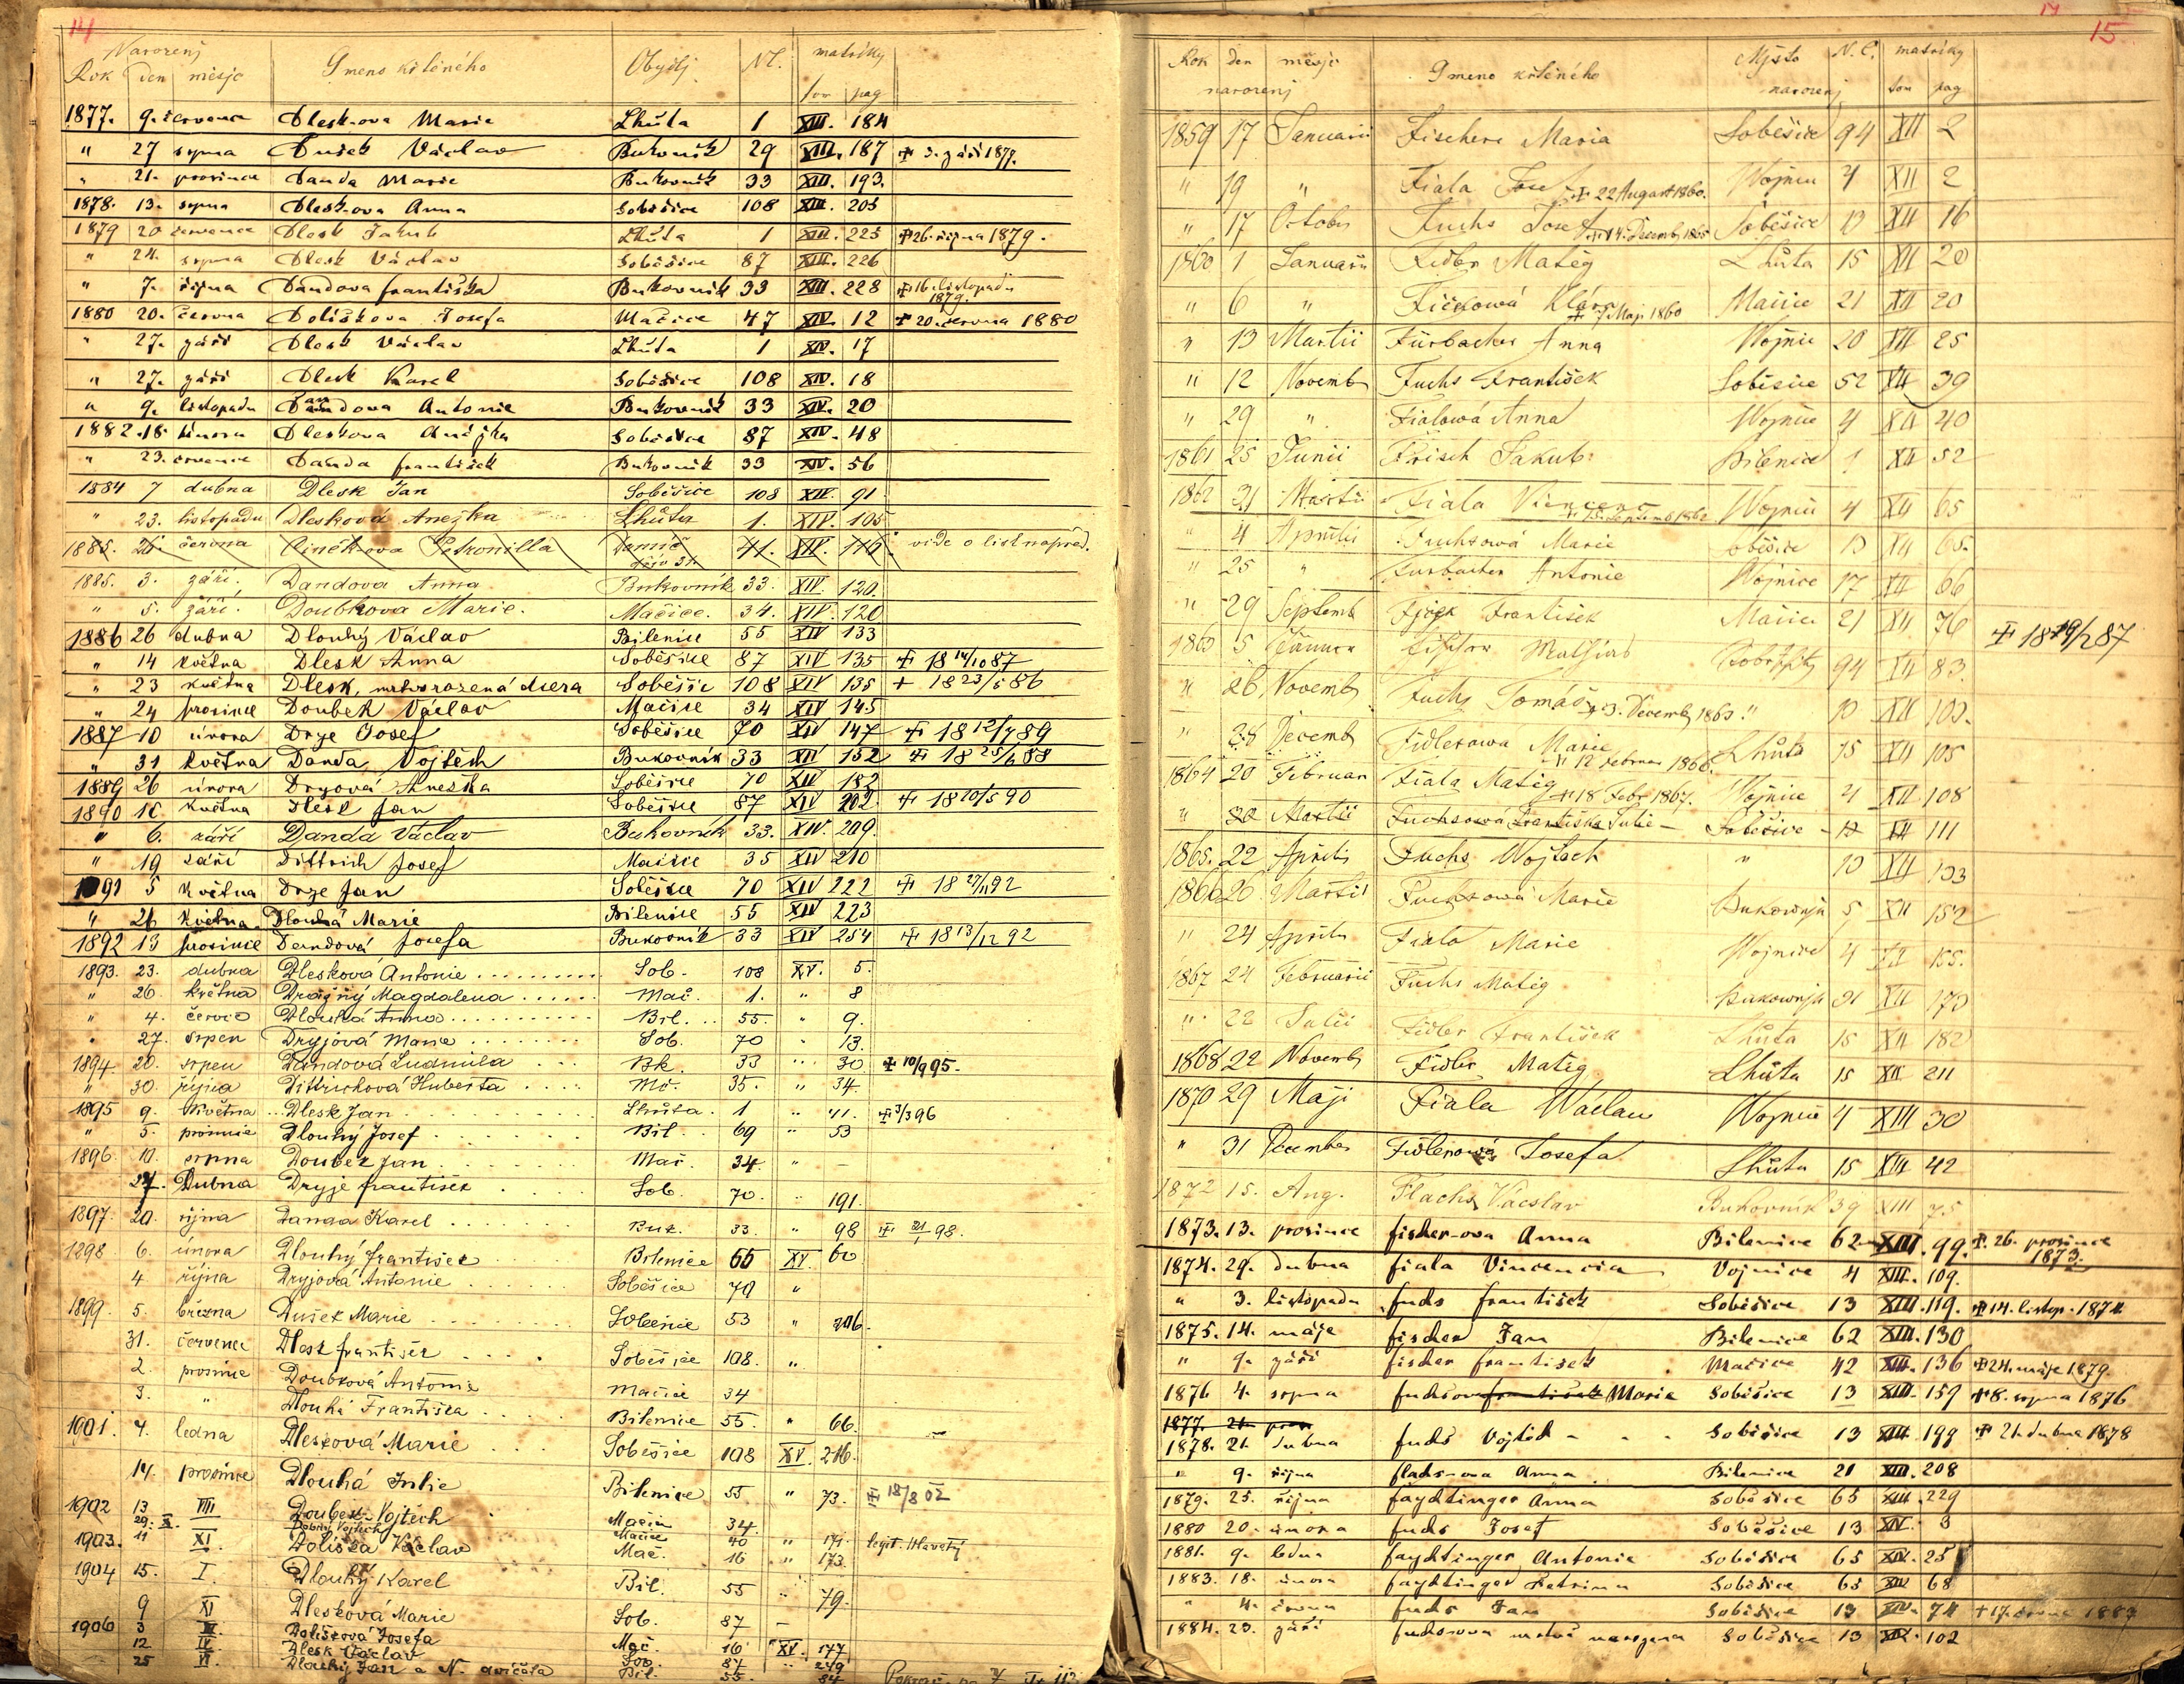 14
Narozenj
Rok den měsjc Gmeno křtěného Obydlj N. matriky
tom pag
1877. 9. července Dlesk-ova Marie Lhůta 1 XIII. 184
" 27 srpna Dušek Václav Bukovník 29 XIII. 187 + 3. září 1877.
" 21. prosince Danda Marie Bukovník 33 XIII. 193.
1878. 13. srpna Dlesk-ova Anna Soběšice 108 XIII. 205
1879 20 července Dlesk Jakub Lhůta 1 XIII. 225 + 26. října 1879.
" 24. srpna Dlesk Václav Soběšice 87 XIII. 226
" 7. října Dandova františka Bukovník 33 XIII. 228 + 16. listopadu 1879.
1880 20. června Doliškova Josefa Mačice 47 XIV. 12 + 20. června 1880
" 27. září Dlesk Václav Lhůta 1 XIV. 17
" 27. září Dlesk Karel Soběšice 108 XIV. 18
" 9. listopadu Dandova Antonie Bukovník 33 XIV. 20
1882. 18. února Dleskova Anežka Soběšice 87 XIV. 48
" 23. července Danda františek Bukovník 33 XIV. 56
1884 7 dubna Dlesk Jan Soběšice 108 XIV. 91.
" 23. listopadu Dlesková Anežka Lhůta 1. XIV. 105
1885. 26. června Petronilla 41. XIV. 116. vide o list napřed.
1885. 3. září. Dandova Anna Bukovník 33. XIV. 120.
" 5. září. Doubkova Marie. Mačice. 34. XIV. 120
1886 26 dubna Dlouhý Václav Bilenice 55 XIV 133
" 14 května Dlesk Anna Soběšice 87 XIV 135 + 18 14/10 87
" 23 května Dlesk, mrtvorozená dcera Soběšic 108 XIV 135 + 18 23/5 86
" 24 prosince Doubek Václav Mačice 34 XIV 145
1887 10 února Drye Josef Soběšice 70 XIV 147 + 18 12/7 89
" 31 května Danda Vojtěch Bukovník 33 XIV 152 + 18 25/6 88
1889 26 února Dryová Anežka Soběšice 70 XIV 182
1890 16 května Dlesk Jan Soběšice 87 XIV 202 + 18 20/5 90
" 6. září Danda Václav Bukovník 33. XIV. 209.
" 19 září Dittrich Josef Mačice 35 XIV 210
1891 5 května Drye Jan Soběšice 70 XIV 222 + 18 27/11 92
" 26 května Dlouhá Marie Bilenice 55 XIV 223
1892 13 prosince Dandová Josefa Bukovník 33 XIV 254 + 18 13/12 92
1893. 23. dubna Dlesková Antonie Sob. 108 XV. 5.
" 26. května Dražný Magdalena Mač. 1. " 8
" 4. červce Dlouhá Anna Bil. 55. " 9.
" 27. srpen Dryjová Marie Sob. 70 " 13.
1894 20. srpen Dandová Ludmila Bk. 33 " 30 + 10/9 95.
" 30. října Dittrichová Huberta Mč. 35. " 34.
1895 9. května Dlesk Jan Lhůta. 1 " 41. + 3/3 96
" 5. prosince Dlouhý Josef Bil. 69 " 53
1896. 10. srpna Doubek Jan Mač. 34. " –
27. Dubna Dryje františek Sob. 70. " 191.
1897. 20. října Danda Karel Buk. 33. " 98 + 21/1 98.
1898. 6. února Dlouhý františek Bilenice 66 XV. 60
4 října Dryjová Antonie Soběšice 70 "
1899. 5. března Dušek Marie Soběšice 53 " 206.
31. července Dlesk františek Soběšice 108. "
2. prosince Doubková Antonie Mačice 34
3. " Dlouhá Františka Bilenice 55. " 66.
1901. 4. ledna Dlesková Marie Soběšice 108 XV. 216.
14. prosince Dlouhá Julie Bilenice 55 " 73. + 18/8 02
1902 13 VIII Doubek Vojtěch Mačice 34.
29. X. Dobrý Vojtěch Mačice 40 " 171. legit. Hlavatý
1903. 11 XI Doliška Václav Mač. 16 " 173.
1904 15. I. Dlouhý Karel Bil. 55 " 79.
9 XI Dlesková Marie Sob. 87 –
1906 3 Dolišková Josefa Mač. 16 XV. 177
12 IV. Dlesk Václav Sob. 87 " 249
25 VI. Dlouhý Jan a N. dvičata Bil. 55. 84
15
Rok den měsjc Gmeno křtěného Mjsto N. C. matriky
narozenj narozenj tom pag
1859 17 Januarii Fischer Maria Soběšice 94 XII 2
" 19 " Fiala Josef + 22 August 1860. Wojnice 4 XII 2
" 17 October Fuchs Josef + 14. Decemb 1865 Soběšice 13 XII 16
1860 1 Januarii Fidler Matěg Lhůta 15 XII 20
" 6 " Fičkowá Klára + 7 Maji 1860 Mačice 21 XII 20
" 13 Martii Fürbacher Anna Wojnice 20 XII 25
" 12 Novemb Fuchs František Soběšice 52 XII 39
" 29 " Fialowá Anna Wojnice 4 XII 40
1861 25 Junii Frisch Jakub Bilenice 1 XII 52
1862 21 Martii Fiala Vincenc + 15. Septemb 1862 Wojnice 4 XII 65
" 4 Aprilis Fuchsowá Marie Soběšice 13 XII 65.
" 25 " Fürbacher Antonie Wojnice 17 XII 66
" 29 Septemb František Mačice 21 XII 76 + 18 19/12 87
1863 5 Mathias 94 XII 83.
" 26 Novemb Fuchs Tomáš + 3. Decemb 1863. " 13 XII 103.
" 28 Decemb Fidlerowa Marie + 12 Februar 1866. Lhůta 15 XII 105
1864 20 Februar Fiala Matěg + 18 Febr 1867. Wojnice 4 XII 108
" 30 Martii Fuchsowá Františka Julie – Soběšice – 13 XII 111
1865. 22 Aprilis Fuchs Wojtěch " 13 XII 133
1866 26 Martii Fuchsowá Marie Bukownjk 5 XII 152
" 24 Aprilis Fiala Marie Wojnice 4 XII 155.
1867 24 Februarii Fuchs Matěg Bukownjk 31 XII 173
" 22 Julii Fidler František Lhůta 15 XII 182
1868 22 Novemb Fidler Matěg Lhůta 15 XII 211
1870 29 Maji Fiala Wáclaw Wojnice 4 XIII 30
" 31 December Fidlerowá Josefa Lhůta 15 XIII 42
1872 15. Aug. Flachs Václav Bukovník 39 XIII 75
1873. 13. prosince fisherova Anna Bilenice 62 XIII. 99. + 26. prosince 1873.
1874. 29. dubna fiala Vincencia Vojnice 4 XIII. 109.
" 3. listopadu fuchs františek Soběšice 13 XIII. 119. + 14. listop. 1874
1875. 14. máje fischer Jan Bilenice 62 XIII. 130
" 9. září fischer františek Mačice 42 XIII. 136 + 24. máje 1879.
1876 4. srpna fuchsova františek Marie Soběšice 13 XIII. 159 + 8. srpna 1876
1877. 21. pros
1878. 21. dubna fuchs Vojtěch – Soběšice 13 XIII. 199 + 21. dubna 1878
" 9. října flachs-ova Anna Bilenice 21 XIII. 208
1879. 25. října faydtinger Anna Soběšice 65 XIII. 229
1880 20. února fuchs Josef Soběšice 13 XIV. 3
1881. 9. ledna faydtinger Antonie Soběšice 65 XIV. 25
1883. 18. února faydtinger Katrina Soběšice 65 XIV 68
" 4. června fuchs Jan Soběšice 13 XIV. 74 + 17. června 1883
1884. 23. září fuchsova mrtvě narozena Soběšice 13 XIV. 102